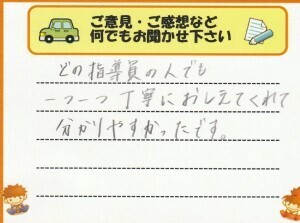 ご意見・ご感想など
何でもお聞かせ下さい
どの指導員の人でも
一つ一つ丁寧におしえてくれて
分かりやすかったです。